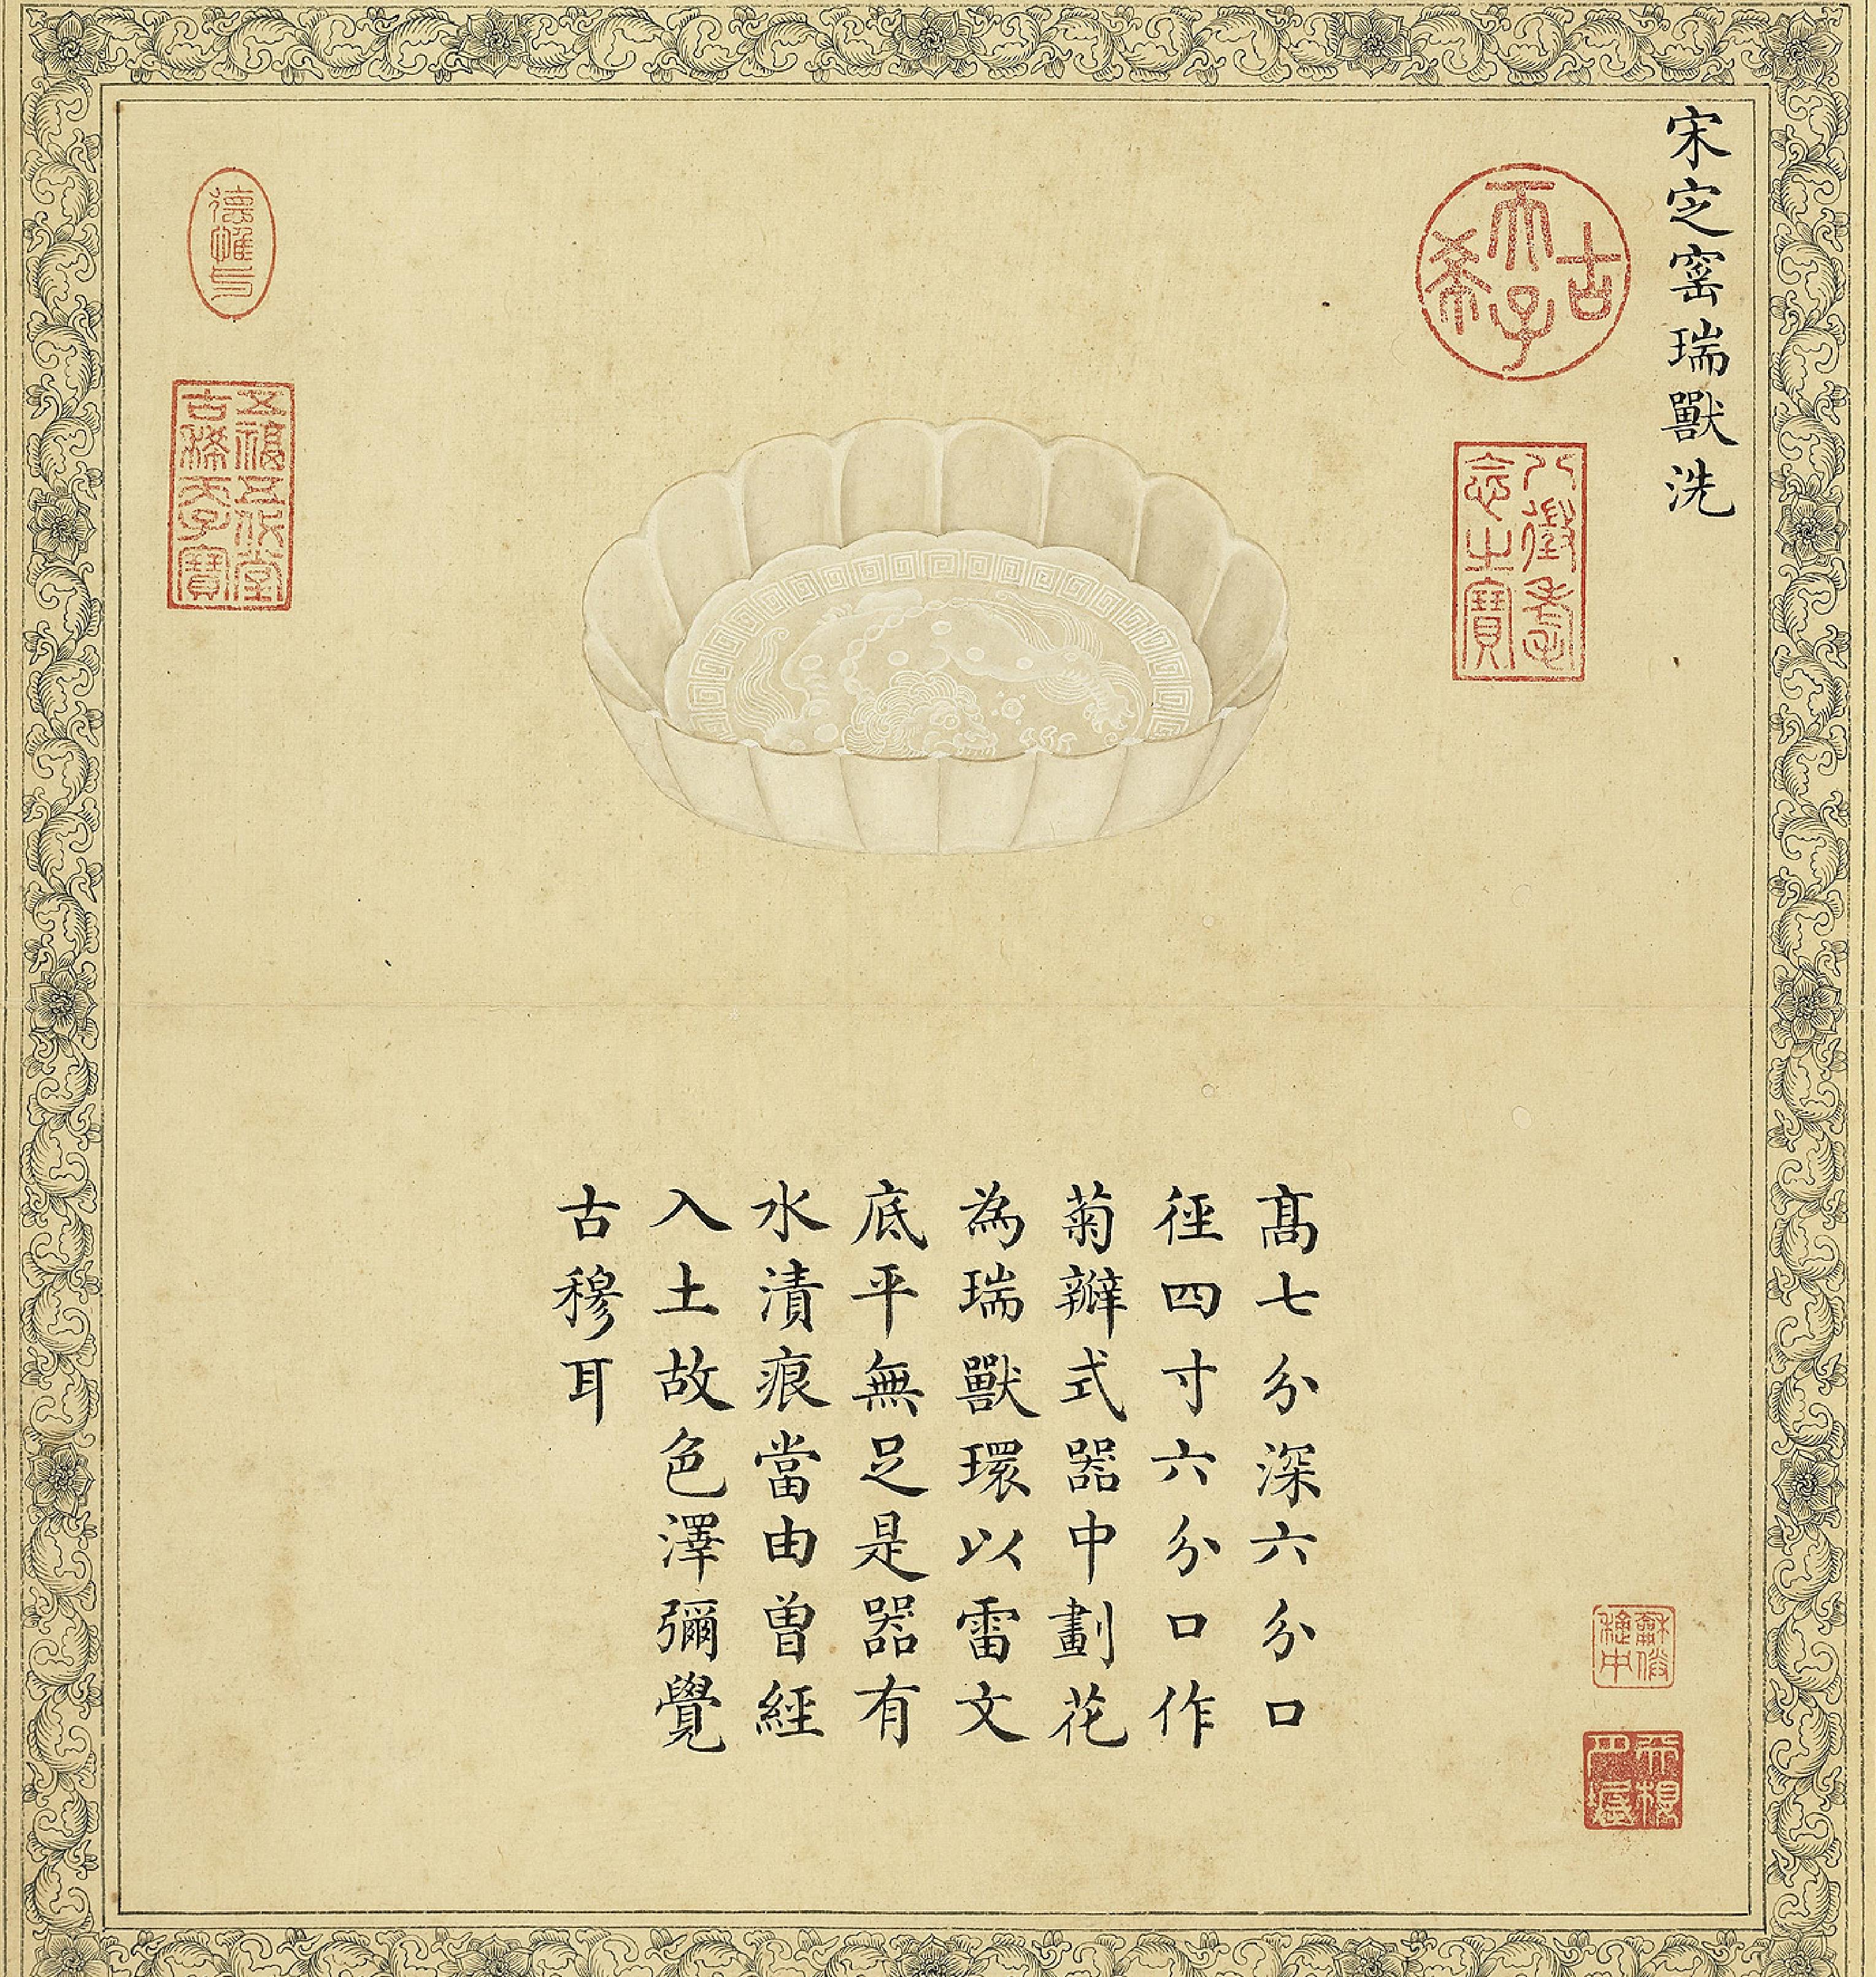 宋定窰瑞獸洗
古希天子
八徵耄念之寶
高七分深六分口
徑四寸六分口作
菊瓣式器中劃花
為瑞獸環以雷文
底平無足是器有
水漬痕當由曾經
入土故色澤彌覺
古穆耳
德惟
五福五代堂
古稀天子寶